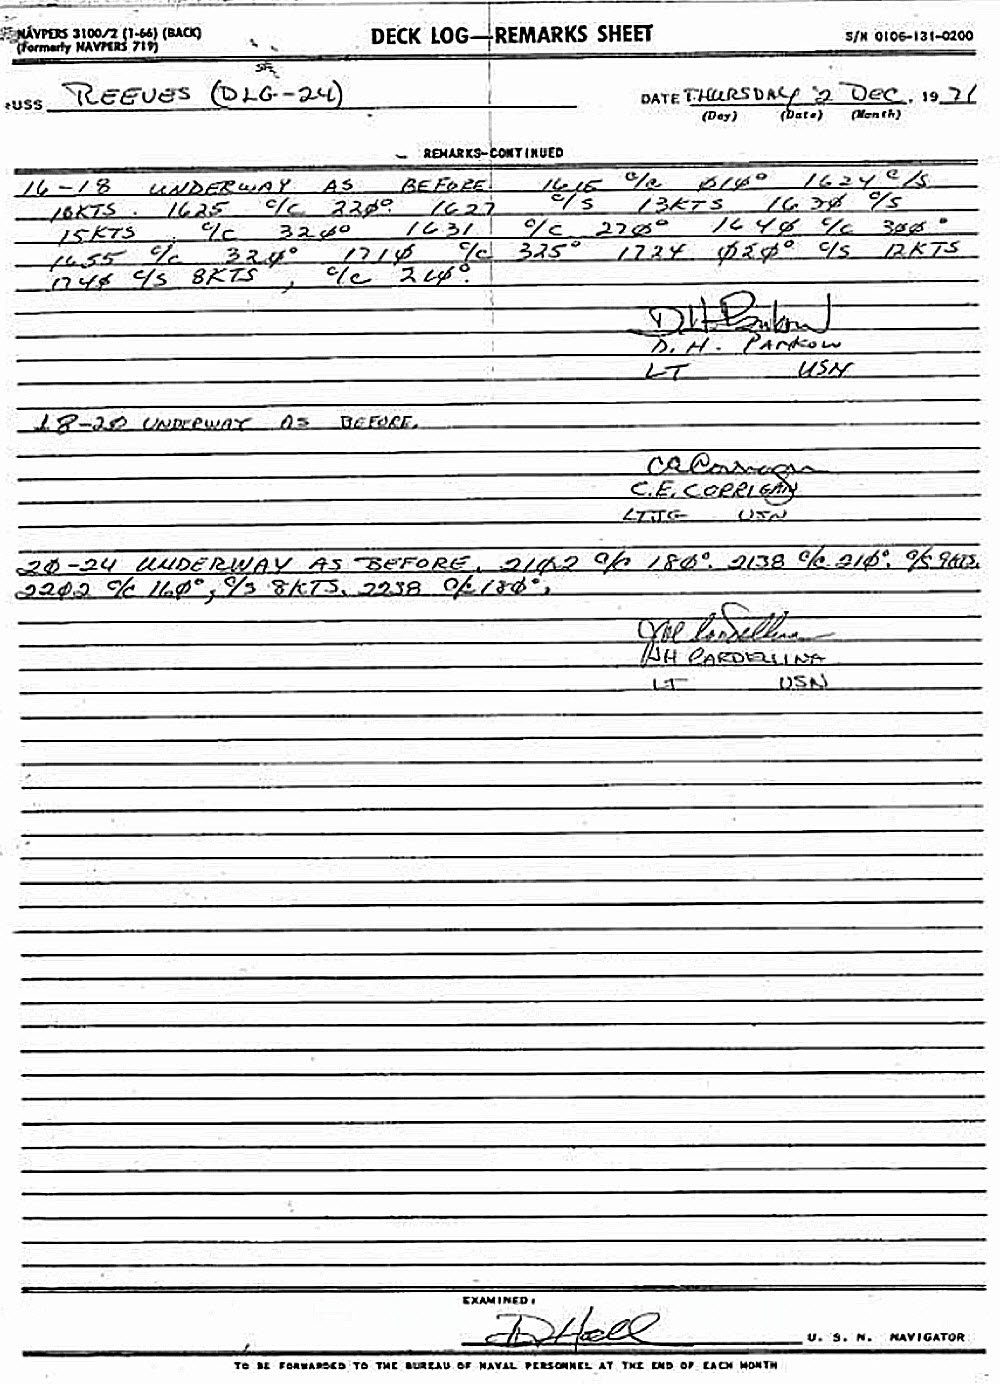 NAVPERS 3100/2 (1-66) (BACK)
(Formerly NAVPERS 719)
DECK LOG—REMARKS SHEET
S/N 0106-131-0200
USS REEVES (DLG-24)
DATE THURSDAY 2 DEC, 19 71
(Day) (Date) (Month)
REMARKS-CONTINUED
16-18 UNDERWAY AS BEFORE. 1615 c/c Ø1Ø° 1624 c/s
10KTS. 1625 c/c 22Ø°. 1627 c/s 13KTS 163Ø c/s
15KTS. c/c 32Ø° 1631 c/c 27Ø° 164Ø c/c 3ØØ°
1655 c/c 32Ø° 171Ø c/c 325° 1724 Ø2Ø° c/s 12KTS
174Ø c/s 8KTS, c/c 21Ø°.
D. H. PANKOW
LT USN
18-2Ø UNDERWAY AS BEFORE.
C.E. CORRIGAN
LTJG USN
2Ø-24 UNDERWAY AS BEFORE. 21Ø2 c/c 18Ø°. 2138 c/c 21Ø°. c/s 9KTS.
22Ø2 c/c 16Ø°, c/s 8KTS. 2238 c/c 18Ø°.
CARDELLINA
LT USN
EXAMINED:
U. S. N. NAVIGATOR
TO BE FORWARDED TO THE BUREAU OF NAVAL PERSONNEL AT THE END OF EACH MONTH